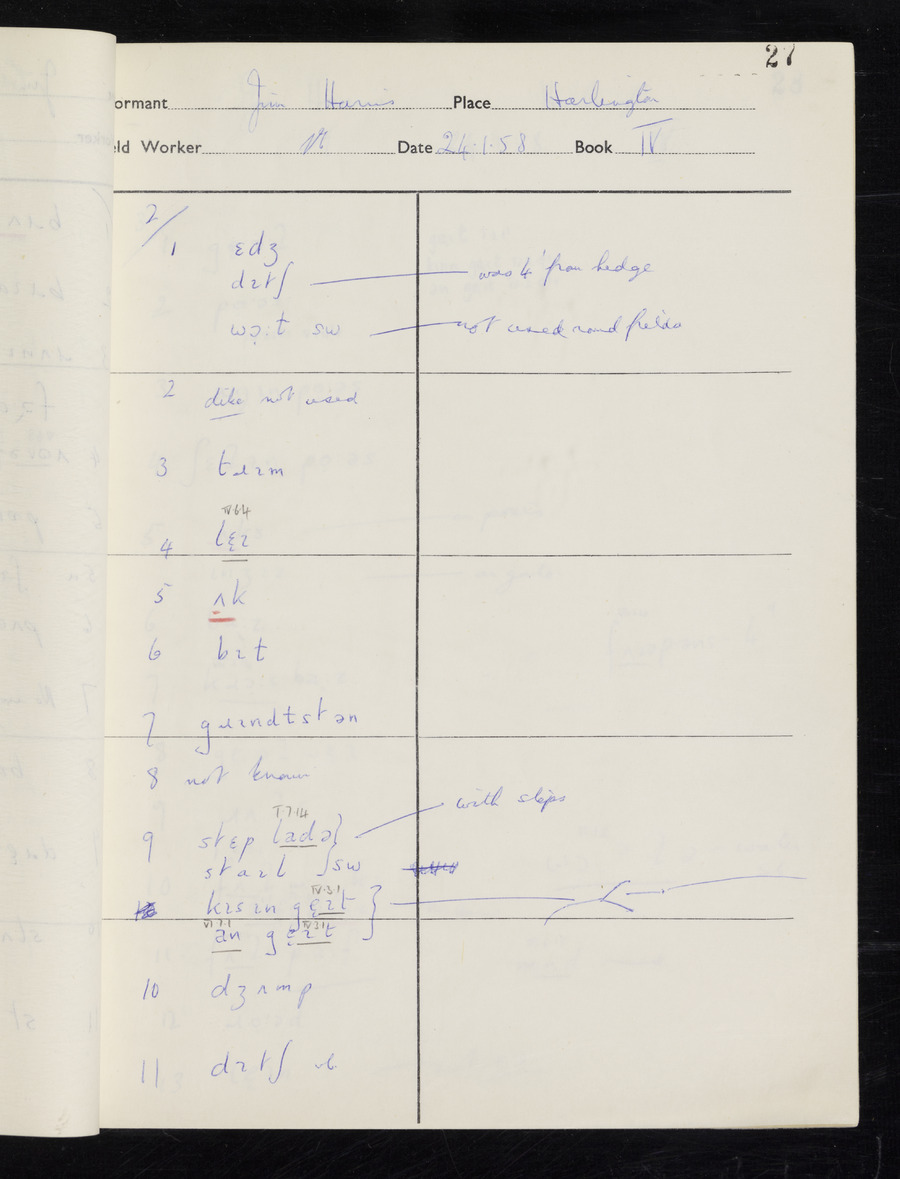 27
ormant Jim Harris Place Harlington
eld Worker Date 24.1.58 Book IV
2/
1 ɛdʒ
dɪtʃ was 4' from hedge
wɔ̣:t sw not used round fields
2 dike not used
3
IV 6 4
4 lɛ̣ɪ
5 ʌk
6 bɪt
7
8 not known
I.7.14
9 stɛp ladə} with steps
staɪl sw
IV.3.1
kɪsɪn gɛ̣ɪt }
VI.7.1 IV.3.1
an gɛ̣ɪt
10 dʒʌmp
11 dɪtʃ